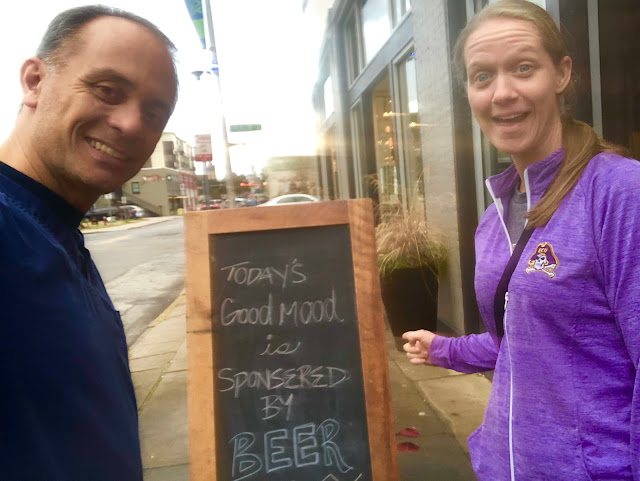 TODAY'S
Good MOOD
is
SPONSERED
BY
BEER